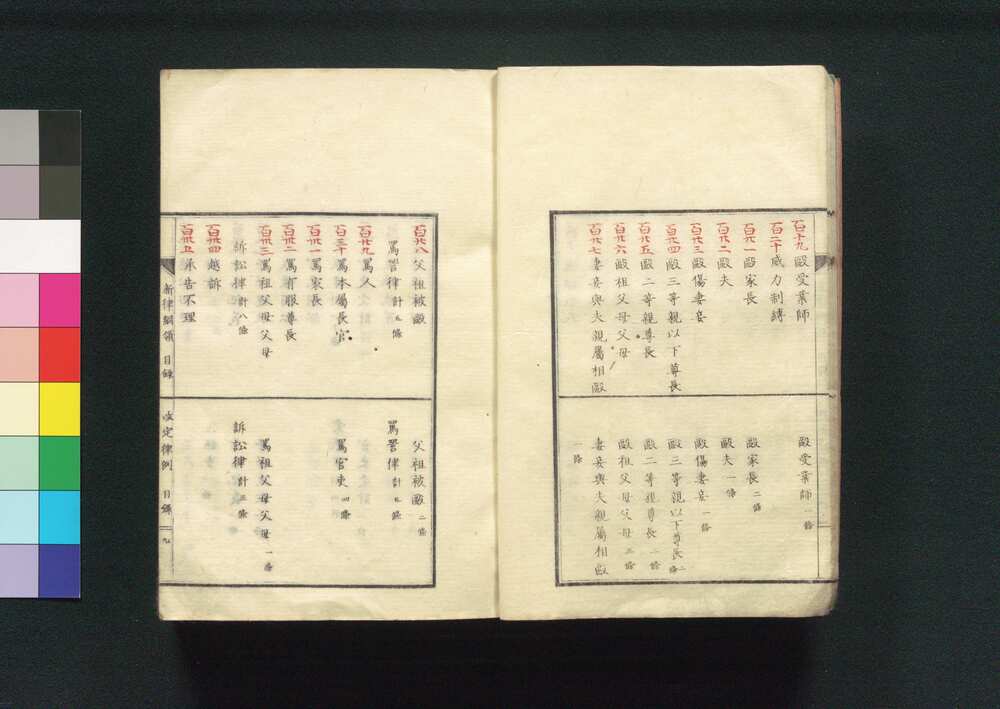 百十九毆受業師
百二十威力制縛
百廿一毆家長
百廿二毆夫
百廿三毆傷妻妾
百廿四毆三等親以下尊長
百廿五毆二等親尊長
百廿六毆祖父母父母
百廿七妻妾與夫親屬相毆
毆受業師 一條
毆家長 二條
毆夫 一條
毆傷妻妾 一條
毆三等親以下尊長 二條
毆二等親尊長 二條
毆祖父母父母 三條
妻妾與夫親屬相毆
一條
百廿八父祖被毆
罵詈律 計五條
百廿九罵人
百三十罵本屬長官
百卅一罵家長
百卅二罵有服尊長
百卅三罵祖父母父母
訴訟律 計八條
百卅四越訴
百卅五承告不理
父祖被毆 二條
罵詈律 計九條
罵官吏 四條
罵祖父母父母 一條
訴訟律 計三條
新律綱領 目錄 改定律例 目錄 九